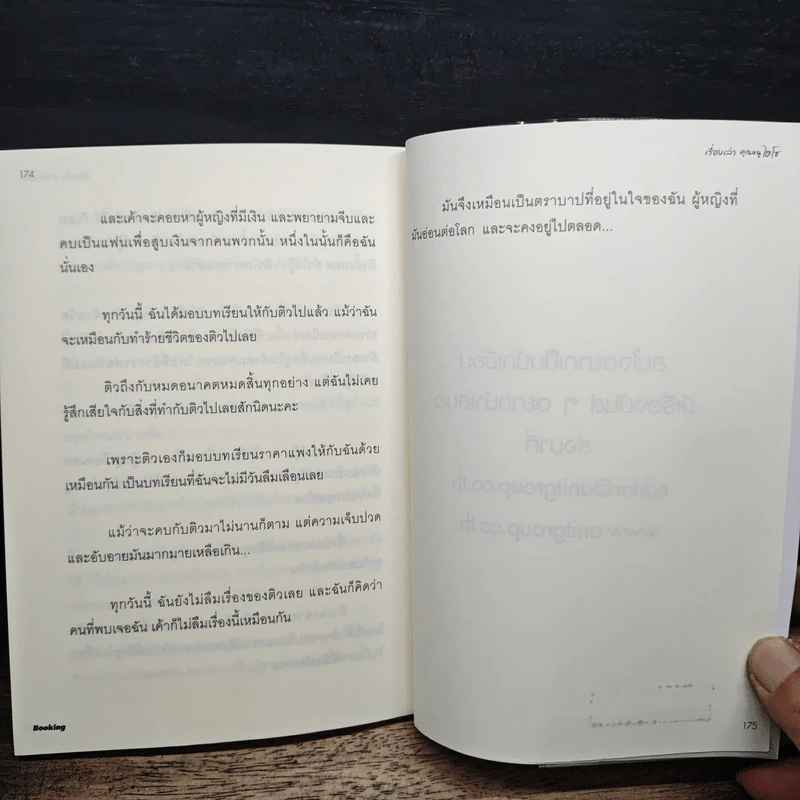 174
และเค้าจะคอยหาผู้หญิงที่มีเงิน และพยายามจีบและ
คบเป็นแฟนเพื่อสูบเงินจากคนพวกนั้น หนึ่งในนั้นก็คือฉัน
นั่นเอง
ทุกวันนี้ ฉันได้มอบบทเรียนให้กับติวไปแล้ว แม้ว่าฉัน
จะเหมือนกับทำร้ายชีวิตของติวไปเลย
ติวถึงกับหมดอนาคตหมดสิ้นทุกอย่าง แต่ฉันไม่เคย
รู้สึกเสียใจกับสิ่งที่ทำกับติวไปเลยสักนิดนะคะ
เพราะติวเองก็มอบบทเรียนราคาแพงให้กับฉันด้วย
เหมือนกัน เป็นบทเรียนที่ฉันจะไม่มีวันลืมเลือนเลย
แม้ว่าจะคบกับติวมาไม่นานก็ตาม แต่ความเจ็บปวด
และอับอายมันมากมายเหลือเกิน...
ทุกวันนี้ ฉันยังไม่ลืมเรื่องของติวเลย และฉันก็คิดว่า
คนที่พบเจอฉัน เค้าก็ไม่ลืมเรื่องนี้เหมือนกัน
Booking
เรื่องเล่า คุณหนูไฮโซ
มันจึงเหมือนเป็นตราบาปที่อยู่ในใจของฉัน ผู้หญิงที่
มันอ่อนต่อโลก และจะคงอยู่ไปตลอด...
สนใจอยากเป็นนักเขียน
มีเรื่องมันส์ ๆ อยากนำเสนอ
ส่งมาที่
editor@anitgroup.co.th
www.anitgroup.co.th
175